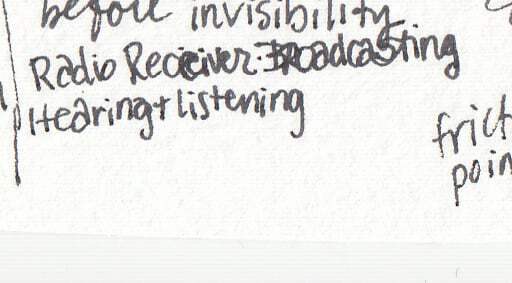 before invisibility
Radio Receiver: Broadcasting
Hearing + listening
frict
poin